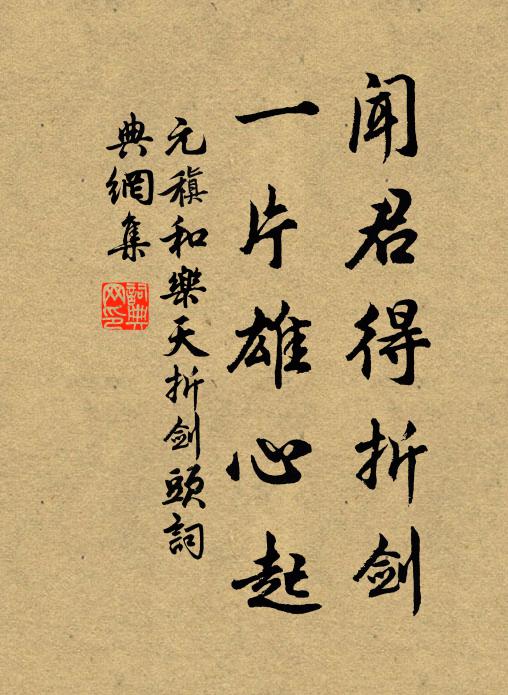 聞君得折劍
一片雄心起
元稹和樂天折劍頭詞
典網集
詞典
网印